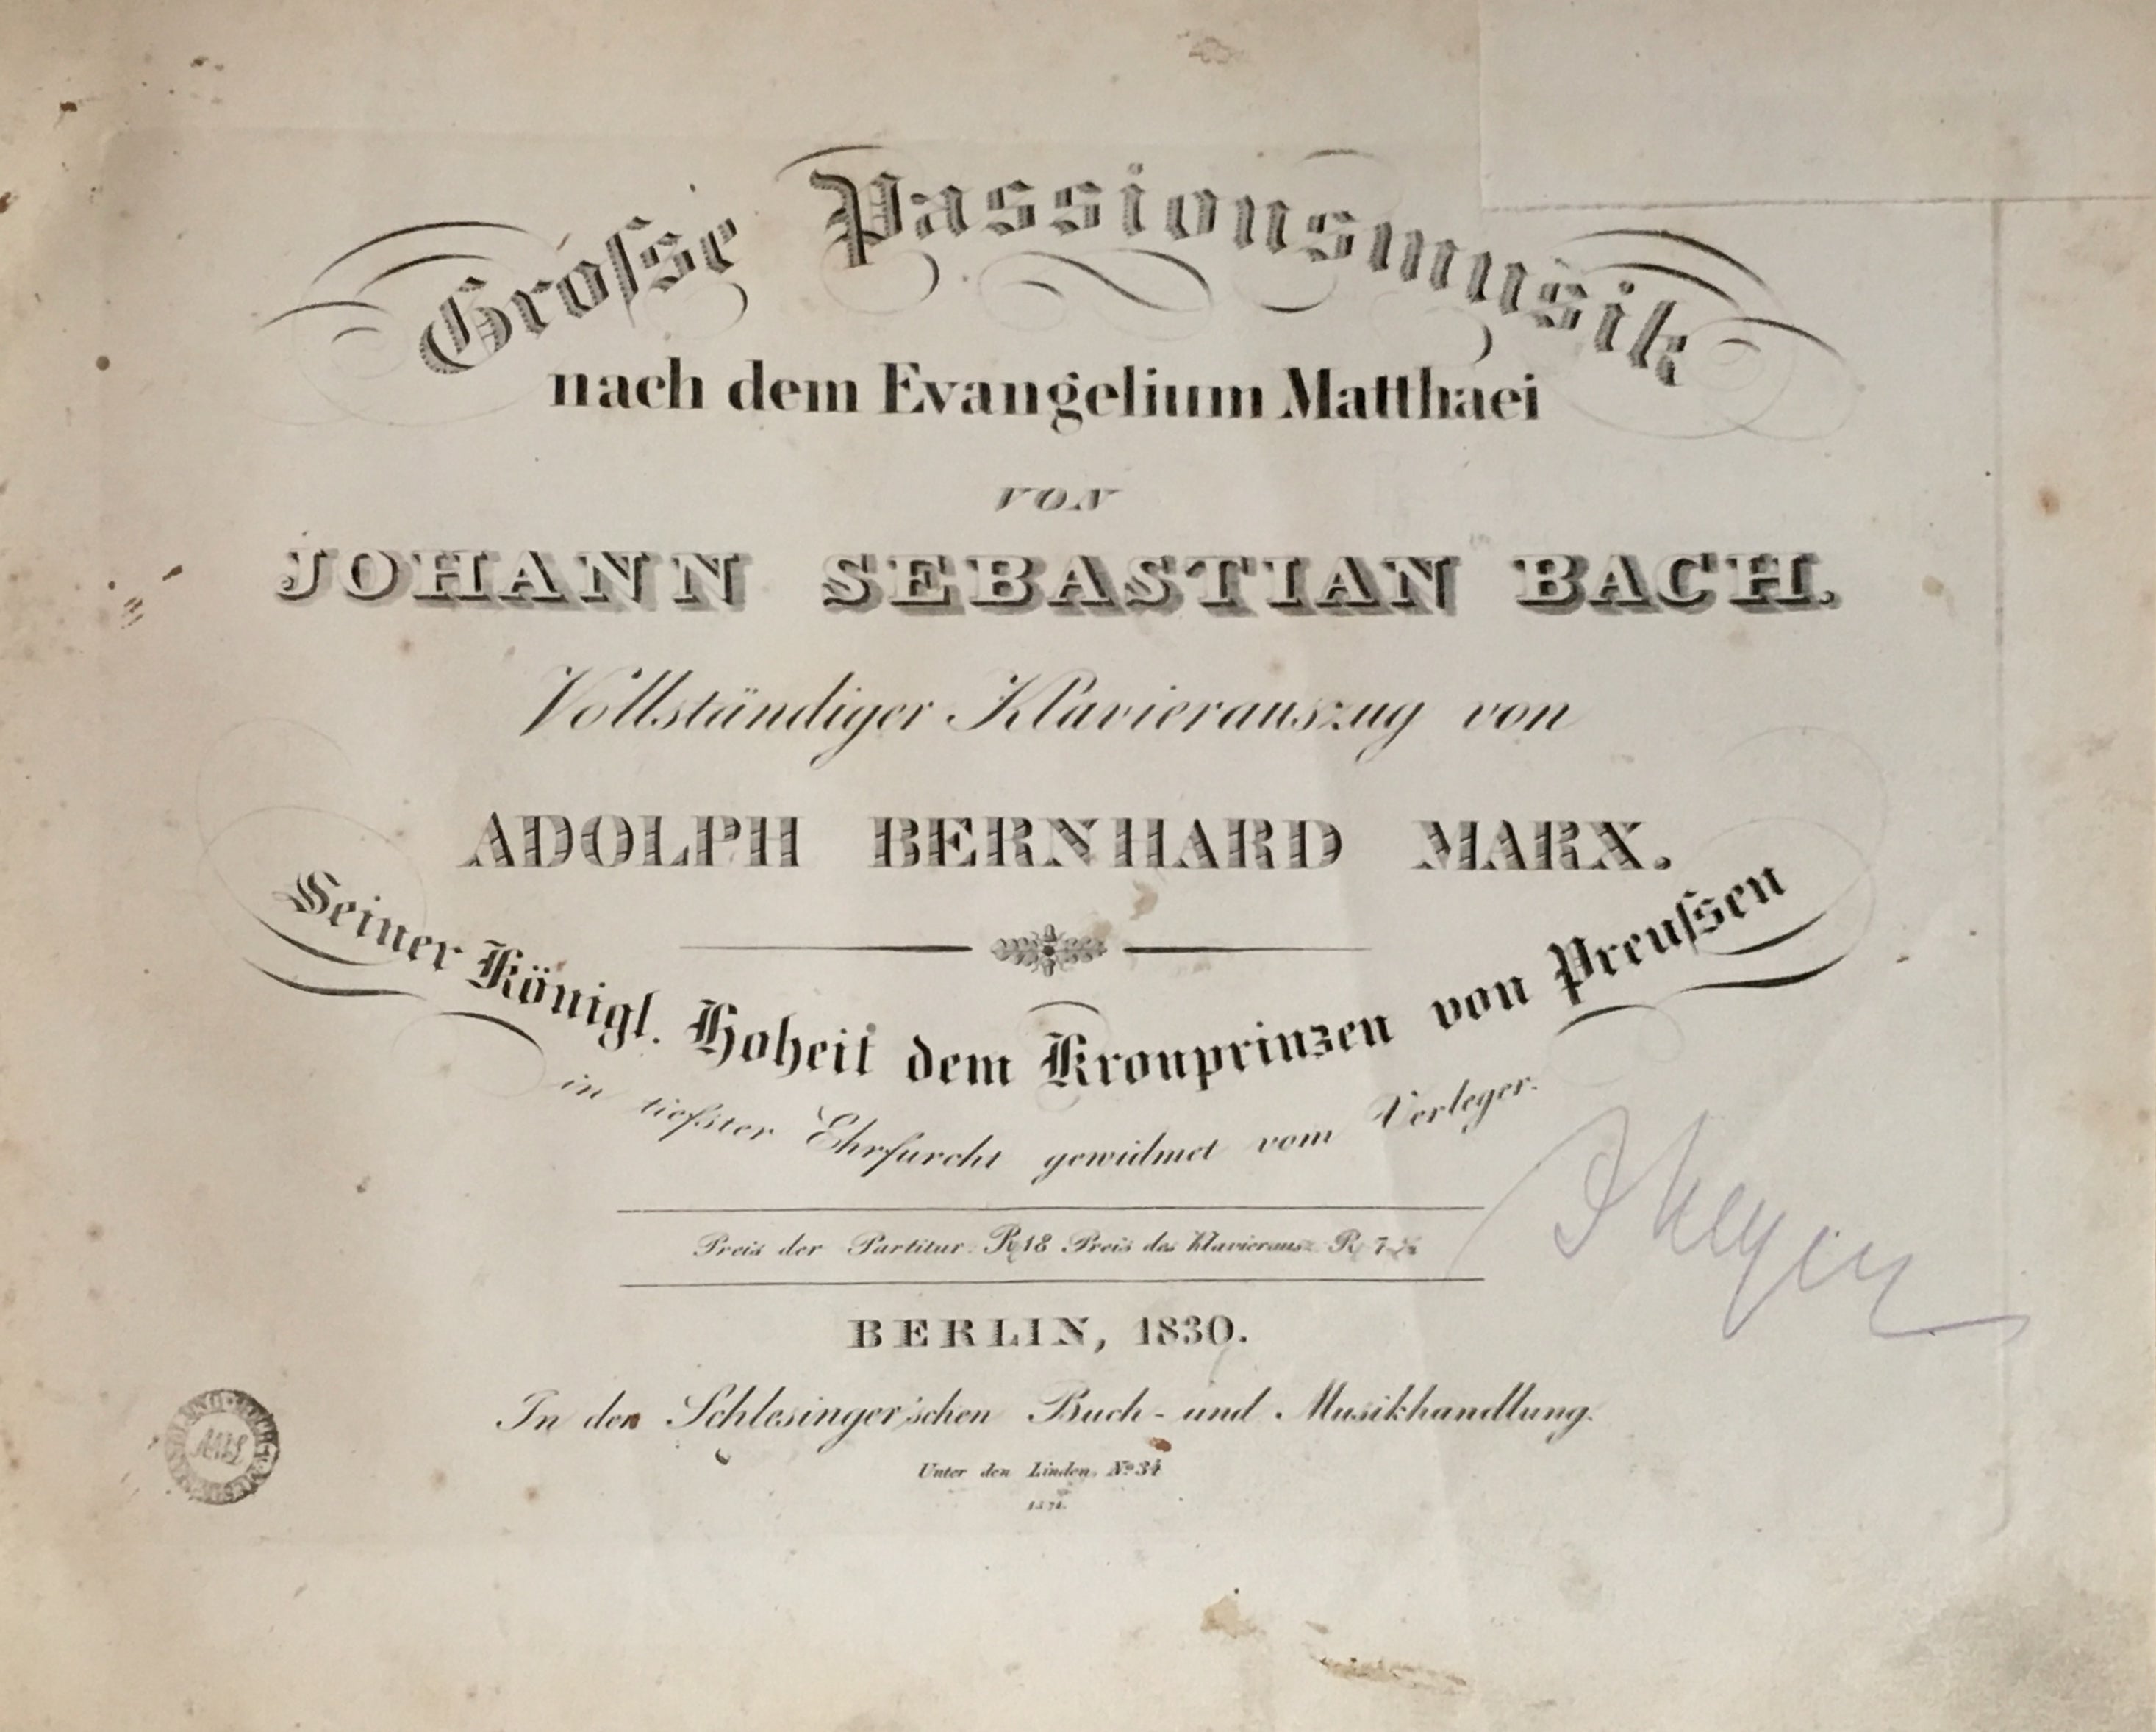 Grosse Passionsmusik
nach dem Evangelium Matthaei
VON
JOHANN SEBASTIAN BACH.
Vollständiger Klavierauszug von
ADOLPH BERNHARD MARX.
Seiner Königl. Hoheit dem Kronprinzen von Preussen
in tiefster Ehrfurcht gewidmet vom Verleger.
Preis der Partitur R 18 Preis des Klavierausz R 7
BERLIN, 1830.
In der Schlesinger'schen Buch- und Musikhandlung.
Unter den Linden, No 34